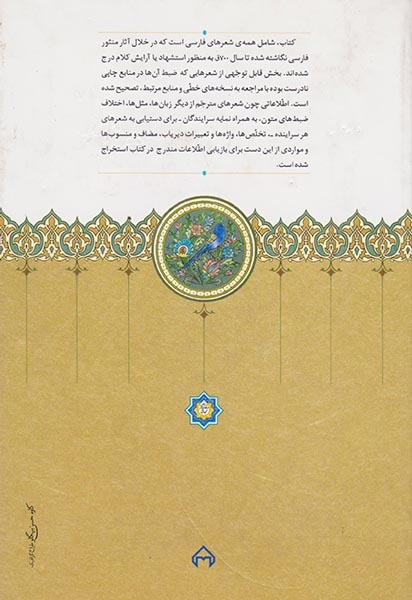 کتاب، شامل همه‌ی شعرهای فارسی است که در خلال آثار منثور
فارسی نگاشته شده تا سال ۷۰۰ق به منظور استشهاد یا آرایش کلام درج
شده‌اند. بخش قابل توجّهی از شعرهایی که ضبط آن‌ها در منابع چاپی
نادرست بوده با مراجعه به نسخه‌های خطّی و منابع مرتبط، تصحیح شده
است. اطلاعاتی چون شعرهای مترجم از دیگر زبان‌ها، مثل‌ها، اختلاف
ضبط‌های متون، به همراه نمایه سرایندگان - برای دستیابی به شعرهای
هر سراینده -، تخلّص‌ها، واژه‌ها و تعبیرات دیریاب، مضاف و منسوب‌ها
و مواردی از این دست برای بازیابی اطلاعات مندرج در کتاب استخراج
شده است.